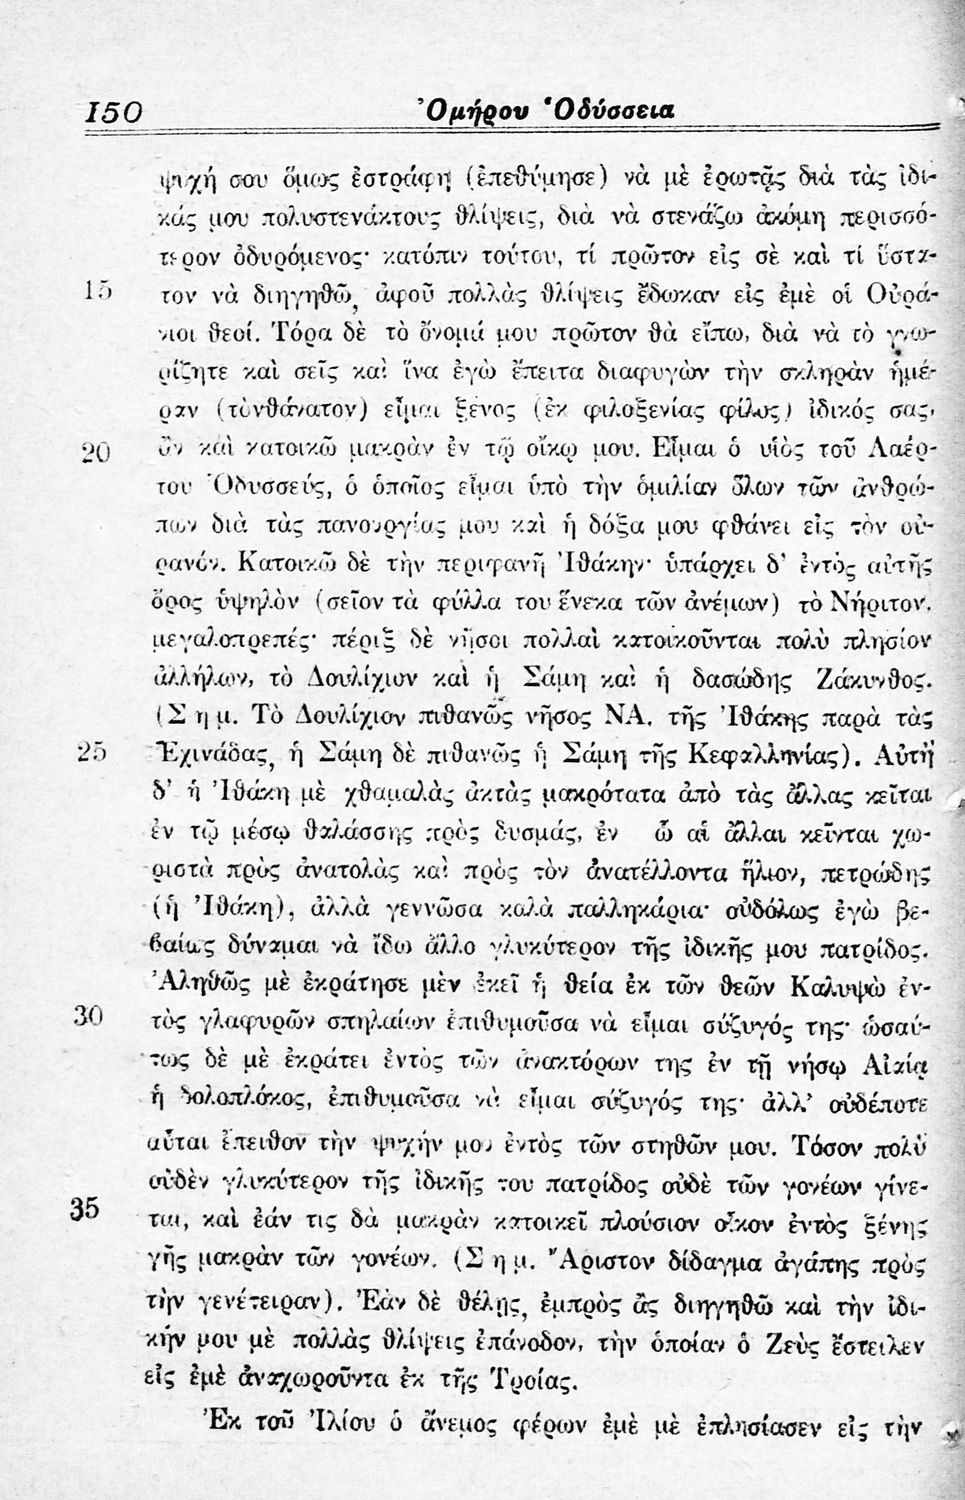 150 Ὁμήρου Ὀδύσσεια
ψυχή σου ὅμως ἐστράφη (ἐπεθύμησε) νὰ μὲ ἐρωτᾷς διὰ τὰς ἰδι-
κάς μου πολυστενάκτους θλίψεις, διὰ νὰ στενάζω ἀκόμη περισσό-
τερον ὀδυρόμενος· κατόπιν τούτου, τί πρῶτον εἰς σὲ καὶ τί ὕστα-
15 τον νὰ διηγηθῶ, ἀφοῦ πολλὰς θλίψεις ἔδωκαν εἰς ἐμὲ οἱ Οὐρά-
νιοι θεοί. Τόρα δὲ τὸ ὄνομά μου πρῶτον θὰ εἴπω, διὰ νὰ τὸ γνω-
ρίζητε καὶ σεῖς καὶ ἵνα ἐγὼ ἔπειτα διαφυγὼν τὴν σκληρὰν ἡμέ-
ραν (τὸνθάνατον) εἶμαι ξένος (ἐκ φιλοξενίας φίλος) ἰδικός σας,
20 ἂν καὶ κατοικῶ μακρὰν ἐν τῷ οἴκῳ μου. Εἶμαι ὁ υἱὸς τοῦ Λαέρ-
του Ὀδυσσεύς, ὁ ὁποῖος εἶμαι ὑπὸ τὴν ὁμιλίαν ὅλων τῶν ἀνθρώ-
πων διὰ τὰς πανουργίας μου καὶ ἡ δόξα μου φθάνει εἰς τὸν οὐ-
ρανόν. Κατοικῶ δὲ τὴν περιφανῆ Ἰθάκην· ὑπάρχει δ' ἐντὸς αὐτῆς
ὄρος ὑψηλὸν (σεῖον τὰ φύλλα του ἕνεκα τῶν ἀνέμων) τὸ Νήριτον,
μεγαλοπρεπές· πέριξ δὲ νῆσοι πολλαὶ κατοικοῦνται πολὺ πλησίον
ἀλλήλων, τὸ Δουλίχιον καὶ ἡ Σάμη καὶ ἡ δασώδης Ζάκυνθος.
(Σημ. Τὸ Δουλίχιον πιθανῶς νῆσος ΝΑ. τῆς Ἰθάκης παρὰ τὰς
25 Ἐχινάδας, ἡ Σάμη δὲ πιθανῶς ἡ Σάμη τῆς Κεφαλληνίας). Αὐτὴ
δ' ἡ Ἰθάκη μὲ χθαμαλὰς ἀκτὰς μακρότατα ἀπὸ τὰς ἄλλας κεῖται
ἐν τῷ μέσῳ θαλάσσης πρὸς δυσμάς, ἐν ᾧ αἱ ἄλλαι κεῖνται χω-
ριστὰ πρὸς ἀνατολὰς καὶ πρὸς τὸν ἀνατέλλοντα ἥλιον, πετρώδης
(ἡ Ἰθάκη), ἀλλὰ γεννῶσα καλὰ παλληκάρια· οὐδόλως ἐγὼ βε-
βαίως δύναμαι νὰ ἴδω ἄλλο γλυκύτερον τῆς ἰδικῆς μου πατρίδος.
Ἀληθῶς μὲ ἐκράτησε μὲν ἐκεῖ ἡ θεία ἐκ τῶν θεῶν Καλυψὼ ἐν-
30 τὸς γλαφυρῶν σπηλαίων ἐπιθυμοῦσα νὰ εἶμαι σύζυγός της· ὡσαύ-
τως δὲ μὲ ἐκράτει ἐντὸς τῶν ἀνακτόρων της ἐν τῇ νήσῳ Αἰαίᾳ
ἡ δολοπλόκος, ἐπιθυμοῦσα νὰ εἶμαι σύζυγός της· ἀλλ' οὐδέποτε
αὗται ἔπειθον τὴν ψυχήν μου ἐντὸς τῶν στηθῶν μου. Τόσον πολὺ
οὐδὲν γλυκύτερον τῆς ἰδικῆς του πατρίδος οὐδὲ τῶν γονέων γίνε-
35 ται, καὶ ἐάν τις δὰ μακρὰν κατοικεῖ πλούσιον οἶκον ἐντὸς ξένης
γῆς μακρὰν τῶν γονέων. (Σημ. Ἄριστον δίδαγμα ἀγάπης πρὸς
τὴν γενέτειραν). Ἐὰν δὲ θέλῃς, ἐμπρὸς ἂς διηγηθῶ καὶ τὴν ἰδι-
κήν μου μὲ πολλὰς θλίψεις ἐπάνοδον, τὴν ὁποίαν ὁ Ζεὺς ἔστειλεν
εἰς ἐμὲ ἀναχωροῦντα ἐκ τῆς Τροίας.
Ἐκ τοῦ Ἰλίου ὁ ἄνεμος φέρων ἐμὲ μὲ ἐπλησίασεν εἰς τὴν